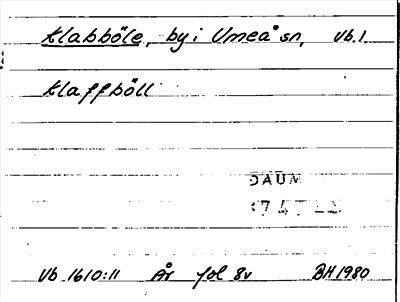 Klabböle, by i Umeå sn, Vb.l.
Klaffböll
DAUM
Vb 1610:11 År fol 8v BH 1980